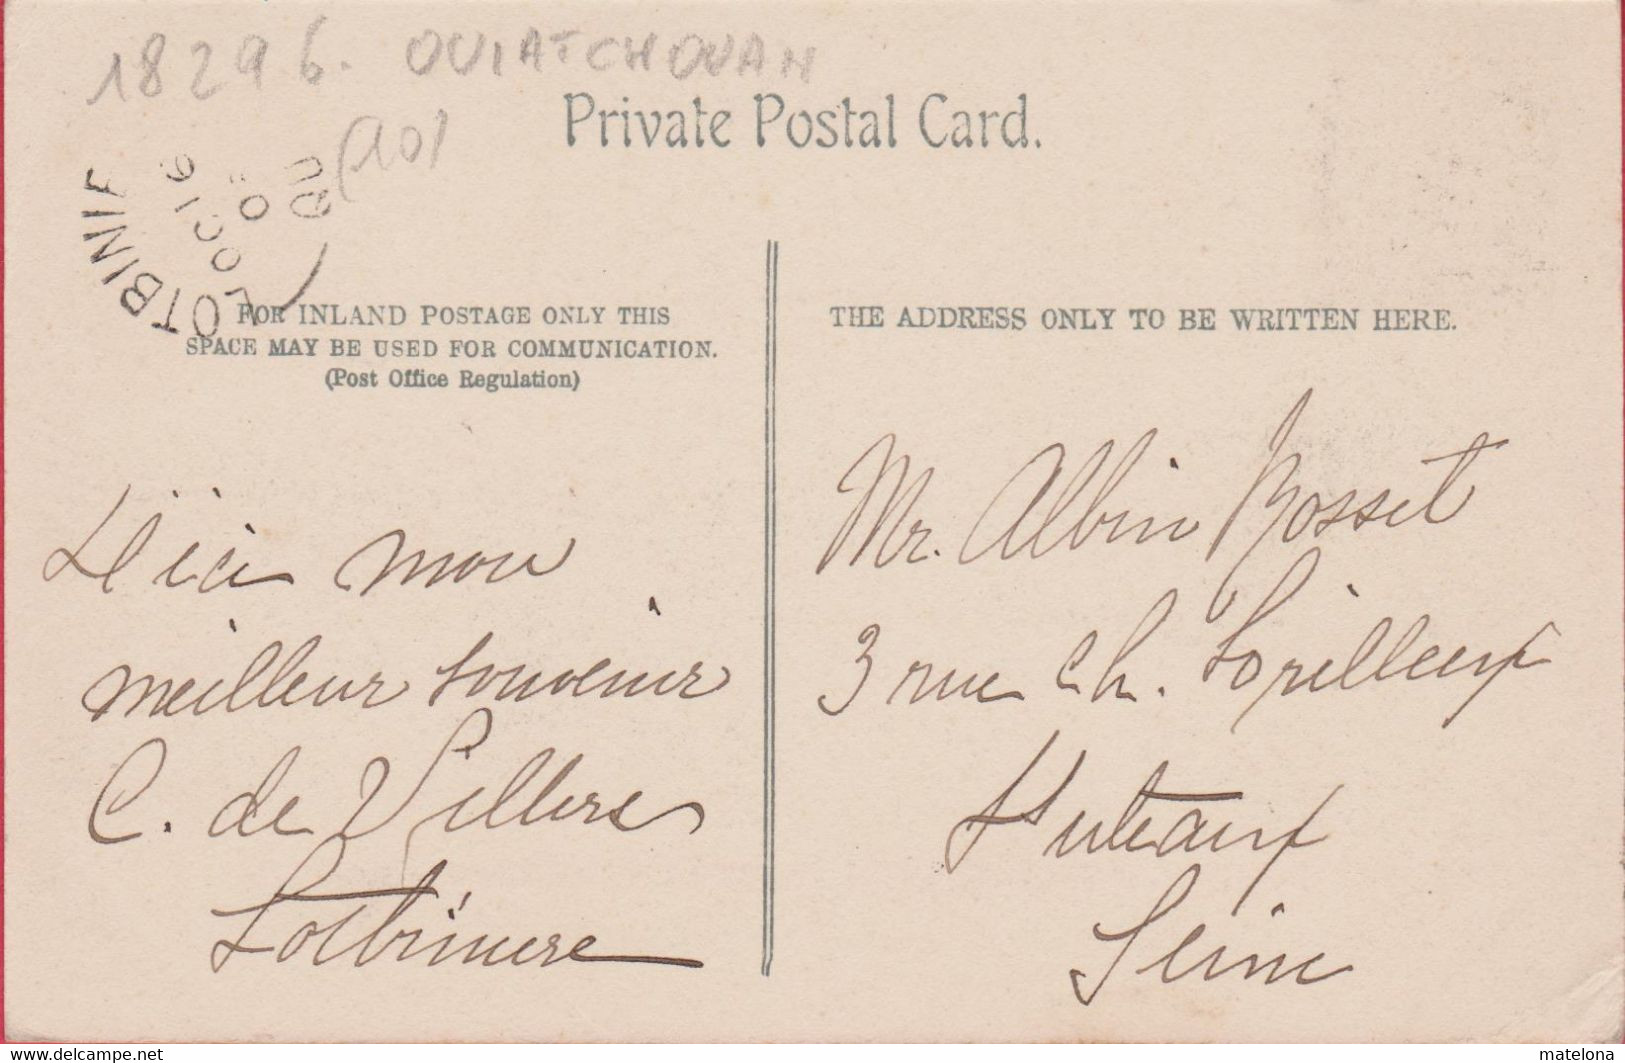 18296. OUIATCHOUAN
(10)
Private Postal Card.
OTBINIE
OC 16
0
QU
FOR INLAND POSTAGE ONLY THIS
SPACE MAY BE USED FOR COMMUNICATION.
(Post Office Regulation)
THE ADDRESS ONLY TO BE WRITTEN HERE.
D'ici mon
meilleur souvenir
C. de Villers
Lotbiniere
Mr. Albin Rosset
3 rue Ch. Lorilleux
Puteaux
Seine
www.delcampe.net
matelona